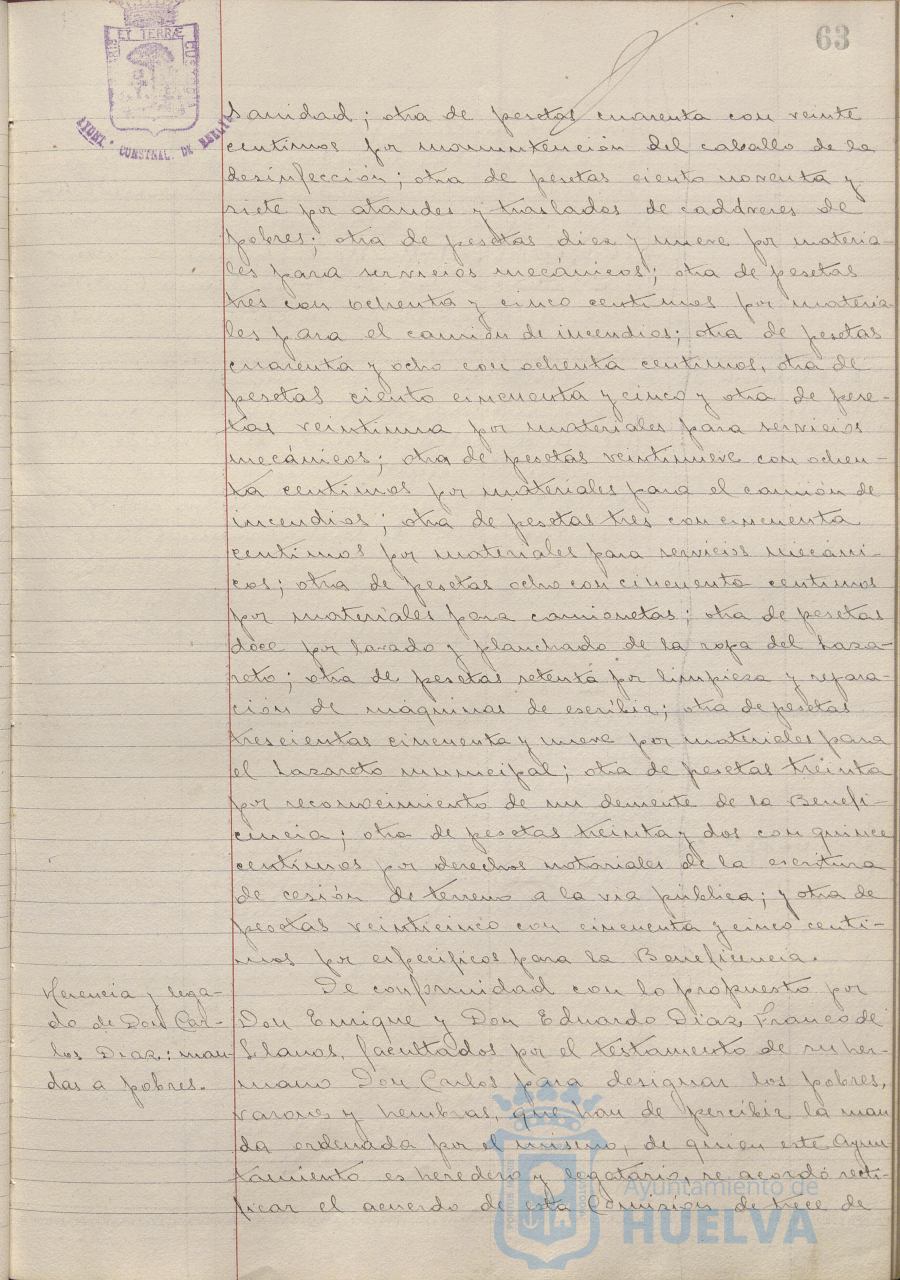 63
ET TERRÆ
AYUNT. CONSTNAL. DE HUELVA
Sanidad; otra de pesetas cuarenta con veinte
centimos por manuntención del caballo de la
desinfección; otra de pesetas ciento noventa y
siete por ataudes y traslados de caddveres de
pobres; otra de pesetas diez y nueve por materia-
les para servicios mecánicos; otra de pesetas
tres con ochenta y cinco centimos por materia-
les para el camión de incendios; otra de pesetas
cuarenta y ocho con ochenta centimos, otra de
pesetas ciento cincuenta y cinco y otra de pese-
tas veintiuna por materiales para servicios
mecánicos; otra de pesetas veintinueve con ochen-
ta centimos por materiales para el camión de
incendios; otra de pesetas tres con cincuenta
centimos por materiales para servicios mecáni-
cos; otra de pesetas ocho con cincuenta centimos
por materiales para camionetas; otra de pesetas
doce por lavado y planchado de la ropa del Laza-
reto; otra de pesetas setenta por limpieza y repara-
ción de máquinas de escribir; otra de pesetas
trescientas cincuenta y nueve por materiales para
el Lazareto municipal; otra de pesetas treinta
por reconocimiento de un demente de la Benefi-
cincia; otra de pesetas treinta y dos con quince
centimos por derechos notariales de la escritura
de cesión de terreno a la via pública; y otra de
pesetas veinticinco con cincuenta y cinco centi-
mos por especificos para la Beneficencia.
Herencia y lega-
do de Don Car-
los Diaz: man-
das a pobres.
De conformidad con lo propuesto por
Don Enrique y Don Eduardo Diaz Franco de
Llanos, facultados por el testamento de su her-
mano Don Carlos para designar los pobres,
varones y hembras, que han de percibir la man-
da ordenada por el mismo, de quien este Ayun-
tamiento es heredero y legatario, se acordó recti-
ficar el acuerdo de esta Comisión de trece de
Ayuntamiento de
HUELVA